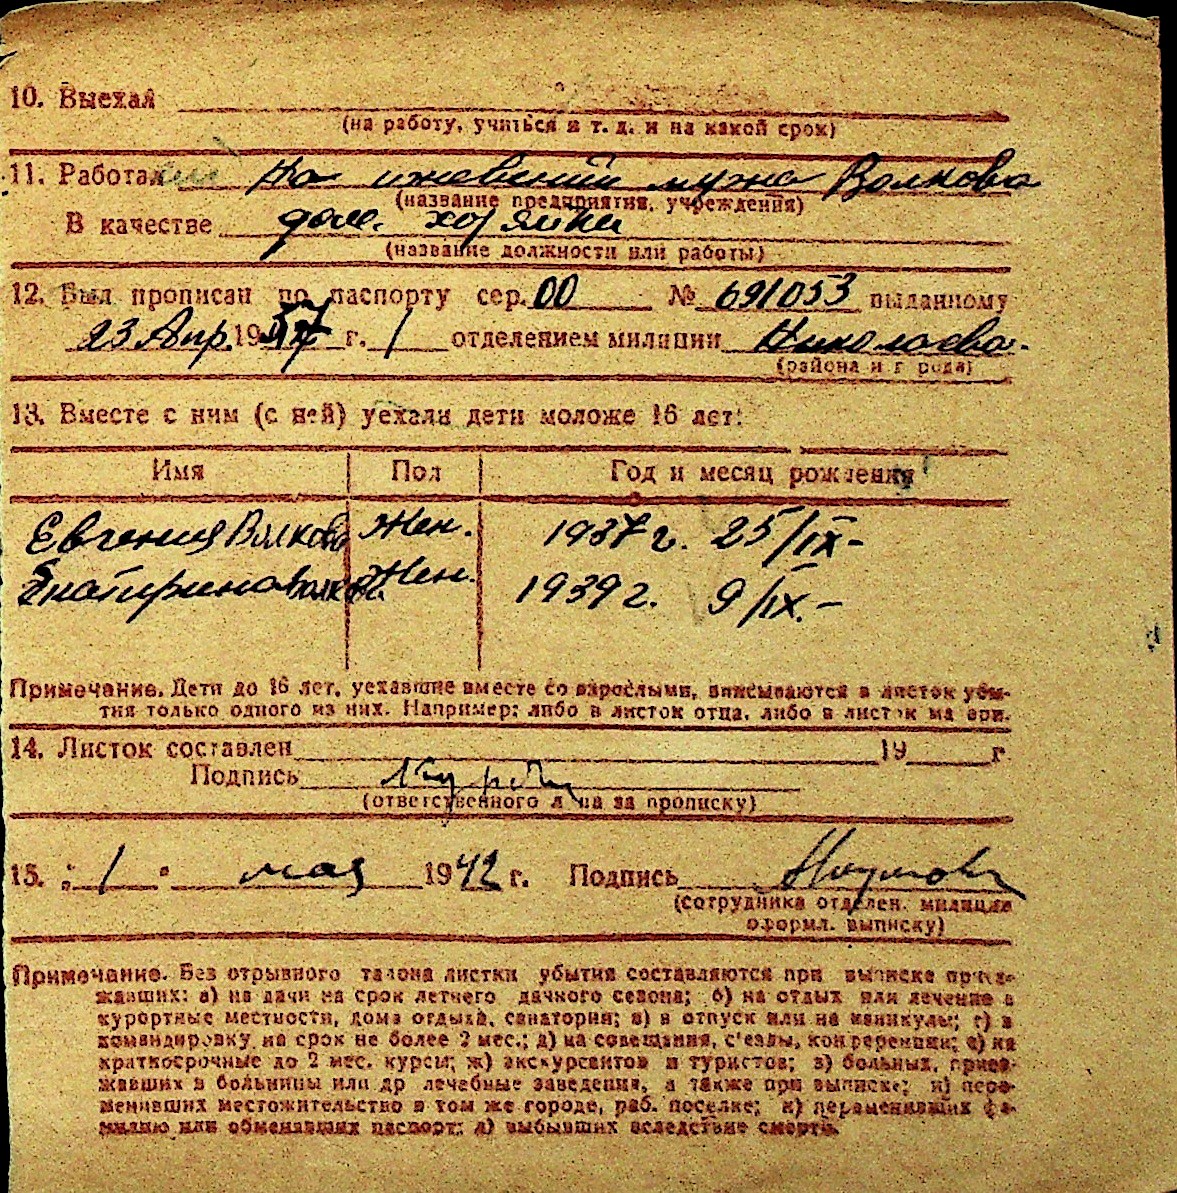 10. Выехал
(на работу, учиться и т. д. и на какой срок)
11. Работал На иждивении мужа Волкова
(название предприятия, учреждения)
В качестве дом. хозяйки
(название должности или работы)
12. Был прописан по паспорту сер. 00 № 691053 выданному
23 Апр. 19 г. 1 отделением милиции Николаева.
(района и г рода)
13. Вместе с ним (с ней) уехали дети моложе 16 лет:
Имя Пол Год и месяц рождения
Евгения Волкова Жен. 1937 г. 25/IX-
Екатирина Волкова Жен. 1939 г. 9/IX.-
Примечание. Дети до 16 лет, уехавшие вместе со взрослыми, вписываются в листок убы-
тия только одного из них. Например: либо в листок отца, либо в листок ма ери.
14. Листок составлен 19 г
Подпись
(ответственного л ца за прописку)
15. „1" мая 1942 г. Подпись Наумова
(сотрудника отделен. милиции
оформл. выписку)
Примечание. Без отрывного талона листки убытия составляются при выписке приез-
жавших: а) на дачи на срок летнего дачного сезона; б) на отдых или лечение в
курортные местности, дома отдыха, санатории; в) в отпуск или на каникулы; г) в
командировку на срок не более 2 мес.; д) на совещания, с'езды, конференции; е) на
краткосрочные до 2 мес. курсы; ж) экскурсантов и туристов; з) больных, приез-
жавших в больницы или др лечебные заведения, а также при выписке; и) пере-
менивших местожительство в том же городе, раб. поселке; к) переменивших фа-
милию или обменявших паспорт; л) выбывших вследствие смерти.